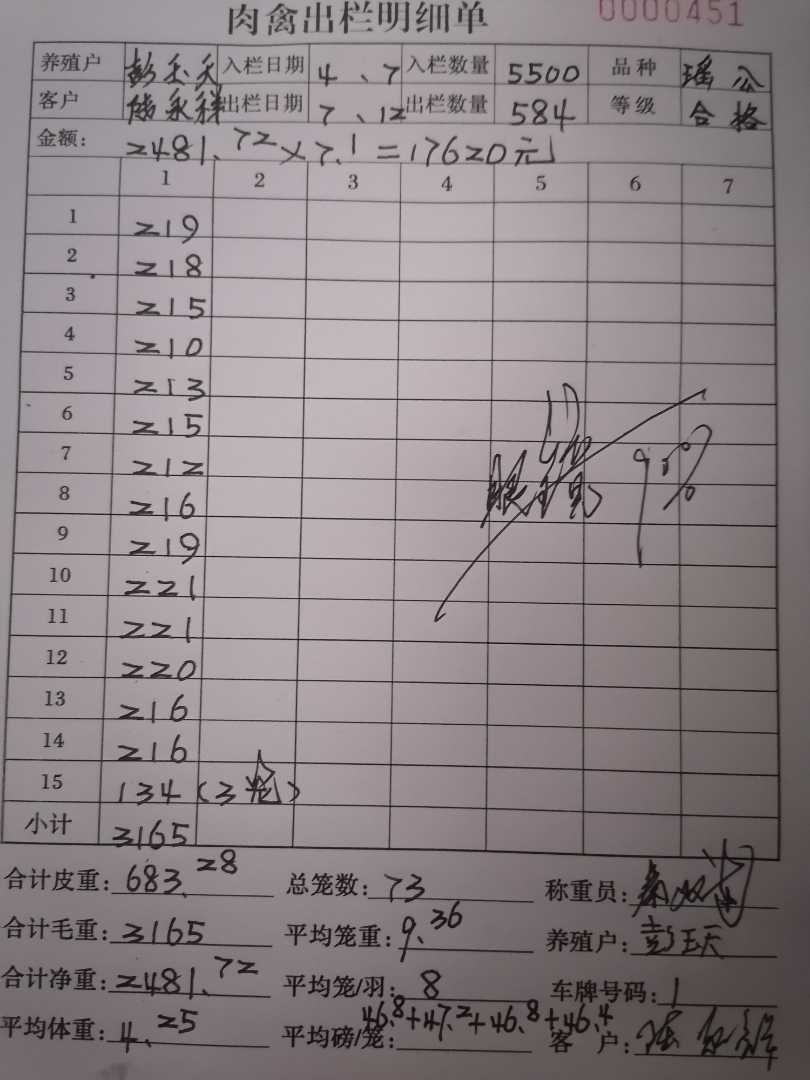 肉禽出栏明细单 0000451
养殖户 彭 天 入栏日期 4、7 入栏数量 5500 品种 瑶公
客户 永祥 出栏日期 7、12 出栏数量 584 等级 合格
金额: 2481.72×7.1=17620元
1 2 3 4 5 6 7
1 219
2 218
3 215
4 210
5 213
6 215
7 212
8 216
9 219
10 221
11 221
12 220
13 216
14 216
15 134(3笼)
小计 3165
合计皮重: 683.28 总笼数: 73 称重员:
合计毛重: 3165 平均笼重: 9.36 养殖户: 彭 天
合计净重: 2481.72 平均笼/羽: 8 车牌号码: 1
平均体重: 4.25 平均磅/笼: 46.8+47.2+46.8+46.4 客户: